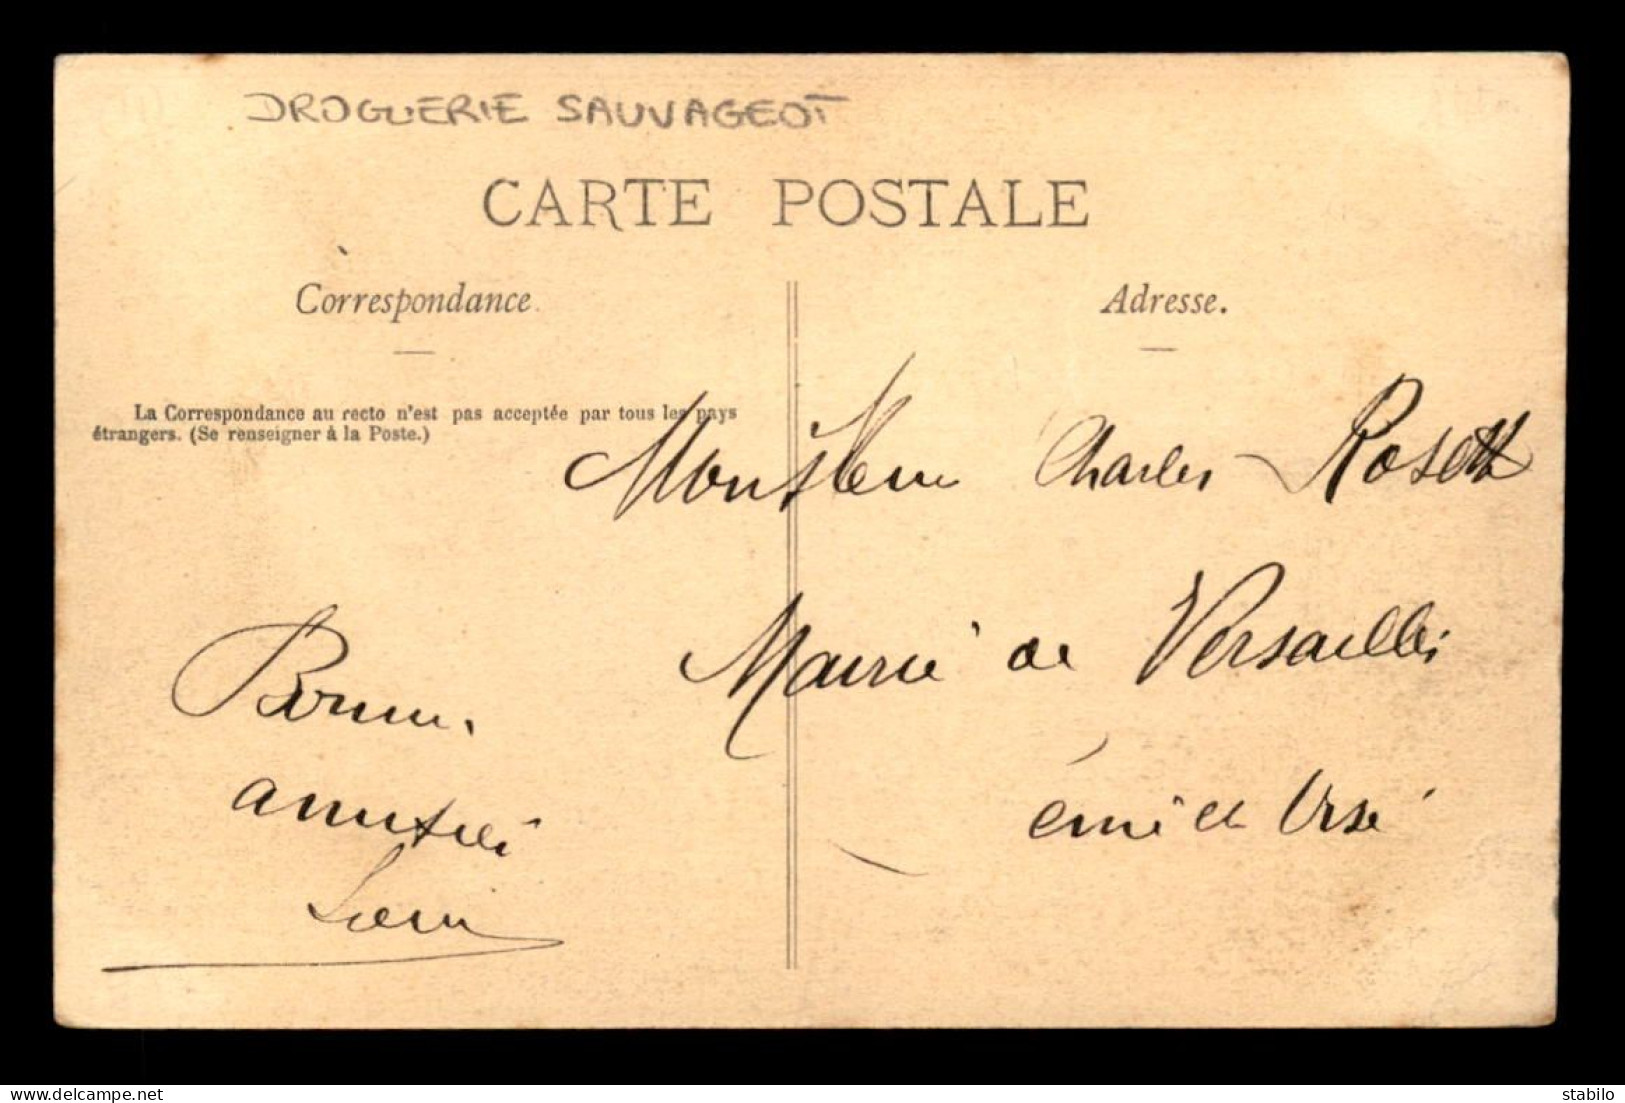 DROGUERIE SAUVAGEOT
CARTE POSTALE
Correspondance.
Adresse.
La Correspondance au recto n'est pas acceptée par tous les pays
étrangers. (Se renseigner à la Poste.)
Monsieur Charles
Mairie de Versailles
Seine et Oise
Bonnes
amitiés
delcampe.net
stabilo